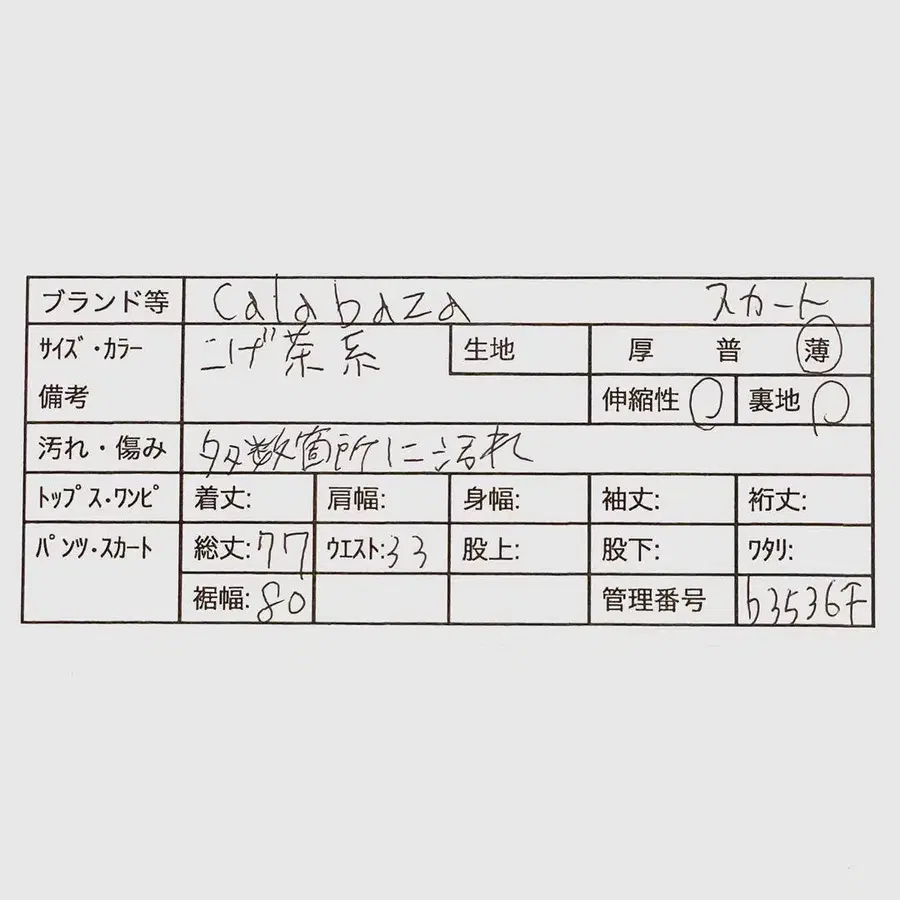 ブランド等 Calabaza スカート
サイズ・カラー こげ茶系 生地 厚 普 薄
備考 伸縮性 ○ 裏地 ○
汚れ・傷み 多数箇所に汚れ
トップス・ワンピ 着丈: 肩幅: 身幅: 袖丈: 裄丈:
パンツ・スカート 総丈:77 ウエスト:33 股上: 股下: ワタリ:
裾幅:80 管理番号 b3536F